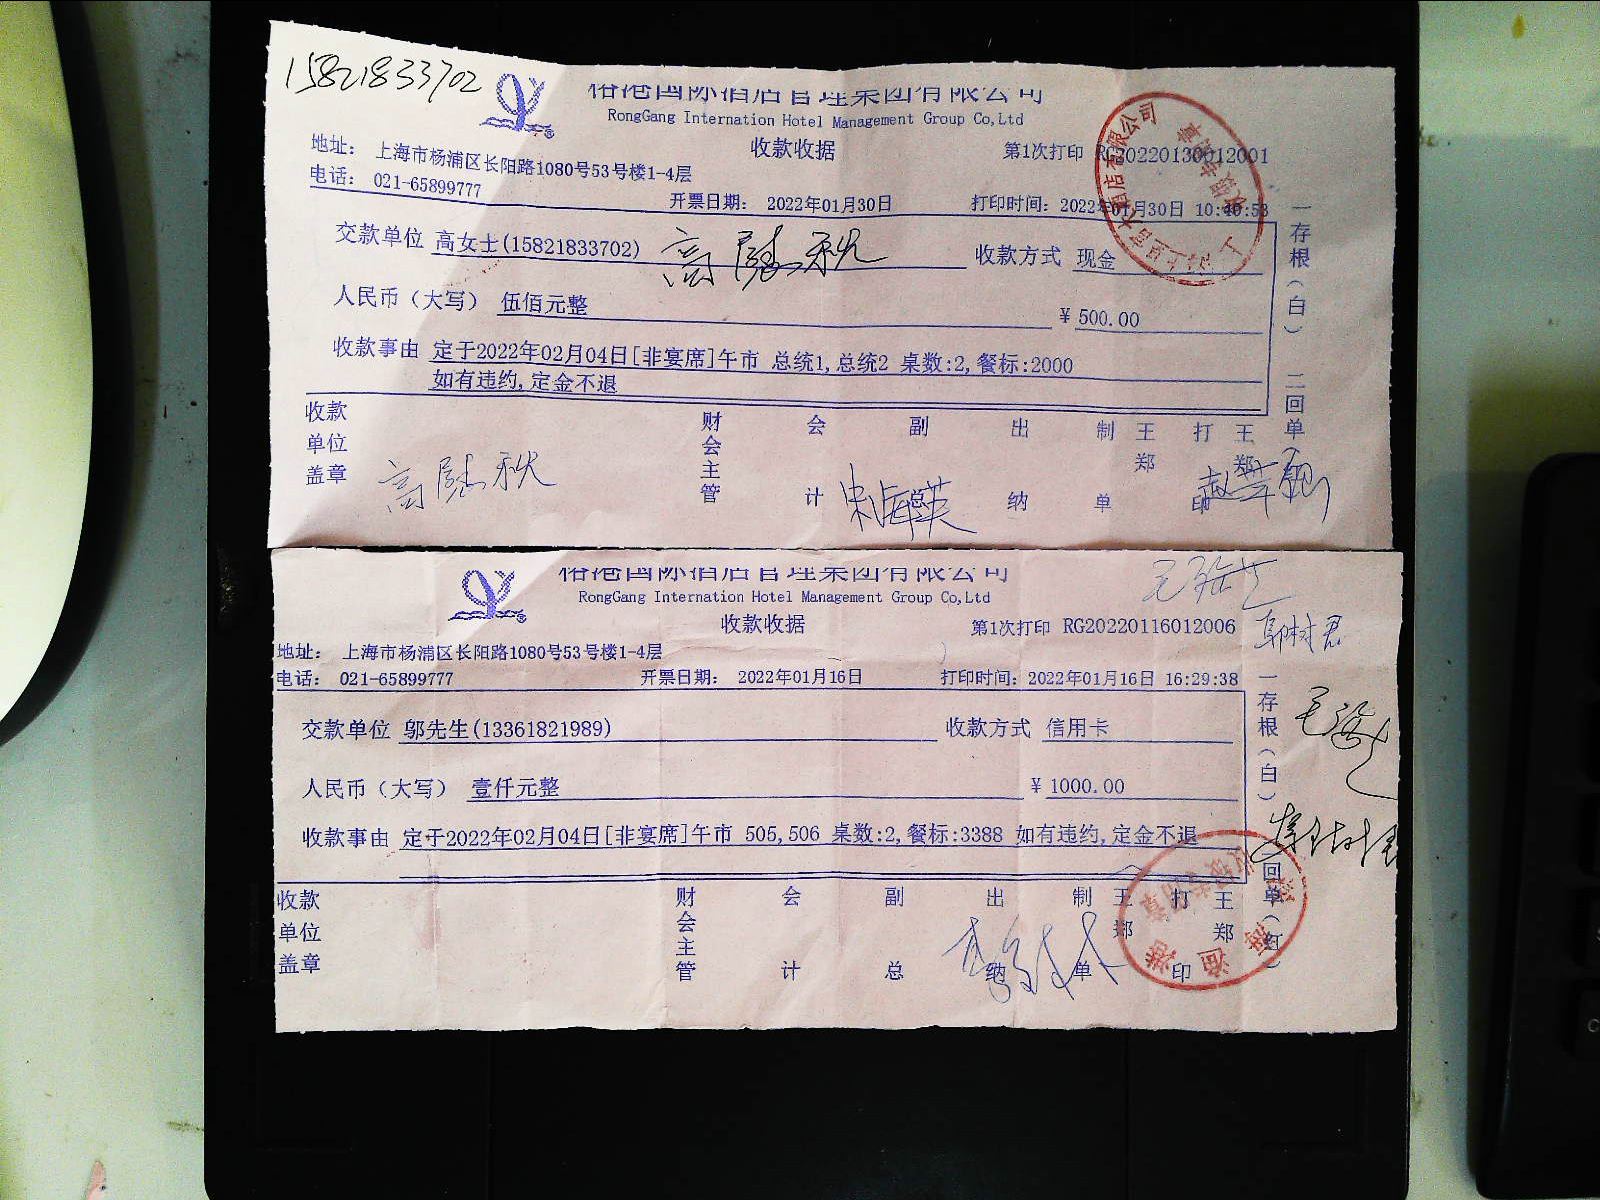 15821833702
榕港国际酒店管理集团有限公司
RongGang Internation Hotel Management Group Co,Ltd
收款收据
第1次打印 RG20220130012001
地址： 上海市杨浦区长阳路1080号53号楼1-4层
电话： 021-65899777
开票日期： 2022年01月30日
打印时间：2022年01月30日 10:40:53
交款单位 高女士(15821833702)
收款方式 现金
人民币（大写） 伍佰元整
¥ 500.00
收款事由 定于2022年02月04日[非宴席]午市 总统1,总统2 桌数:2,餐标:2000
如有违约,定金不退
收款单位盖章
财会主管
会计
副总
出纳
制单
王郑
打印
王郑
一存根（白） 二回单（
榕港国际酒店管理集团有限公司
RongGang Internation Hotel Management Group Co,Ltd
收款收据
第1次打印 RG20220116012006
地址： 上海市杨浦区长阳路1080号53号楼1-4层
电话： 021-65899777
开票日期： 2022年01月16日
打印时间：2022年01月16日 16:29:38
交款单位 邬先生(13361821989)
收款方式 信用卡
人民币（大写） 壹仟元整
¥ 1000.00
收款事由 定于2022年02月04日[非宴席]午市 505,506 桌数:2,餐标:3388 如有违约,定金不退
收款单位盖章
财会主管
会计
副总
出纳
制单
王郑
打印
王郑
一存根（白） 二回单（红）